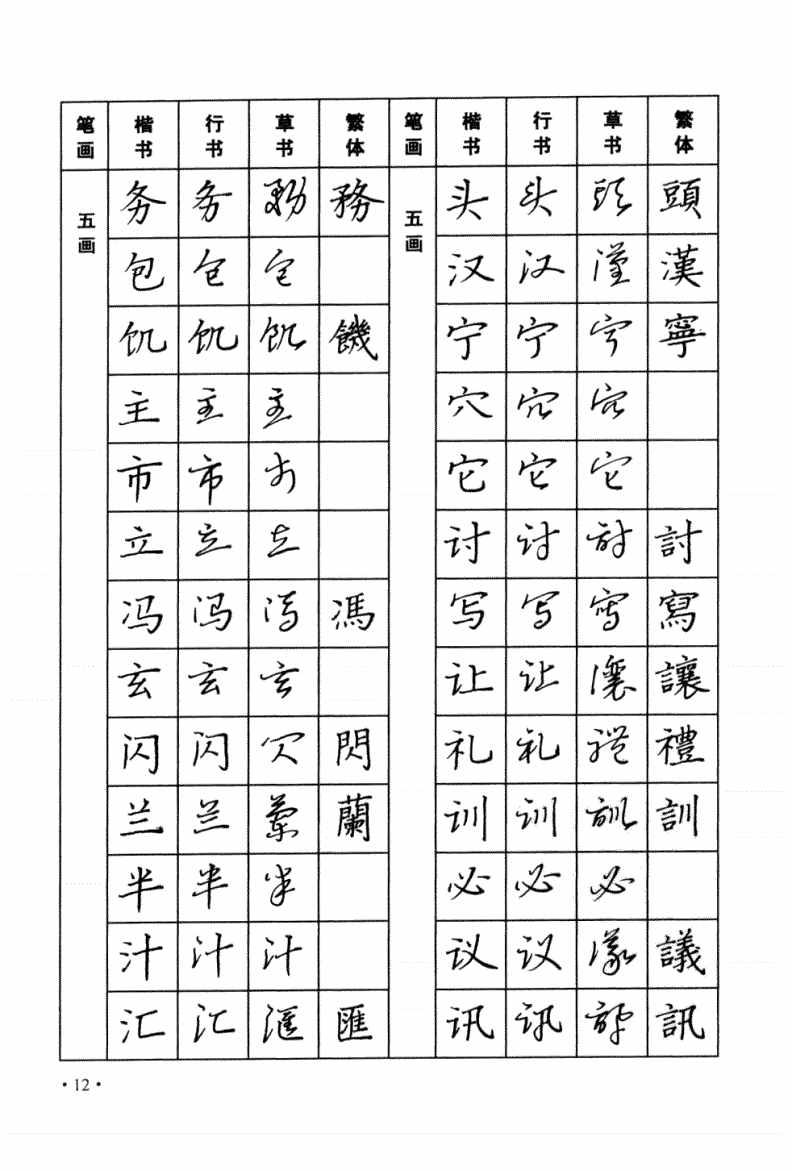 笔画 楷书 行书 草书 繁体 笔画 楷书 行书 草书 繁体
五画 务 务 务 務 五画 头 头 头 頭
包 包 包 汉 汉 汉 漢
饥 饥 饥 饑 宁 宁 宁 寧
主 主 主 穴 穴 穴
市 市 市 它 它 它
立 立 立 讨 讨 討 討
冯 冯 冯 馮 写 写 寫 寫
玄 玄 玄 让 让 讓 讓
闪 闪 闪 閃 礼 礼 禮 禮
兰 兰 蘭 蘭 训 训 訓 訓
半 半 半 必 必 必
汁 汁 汁 议 议 議 議
汇 汇 匯 匯 讯 讯 訊 訊
·12·